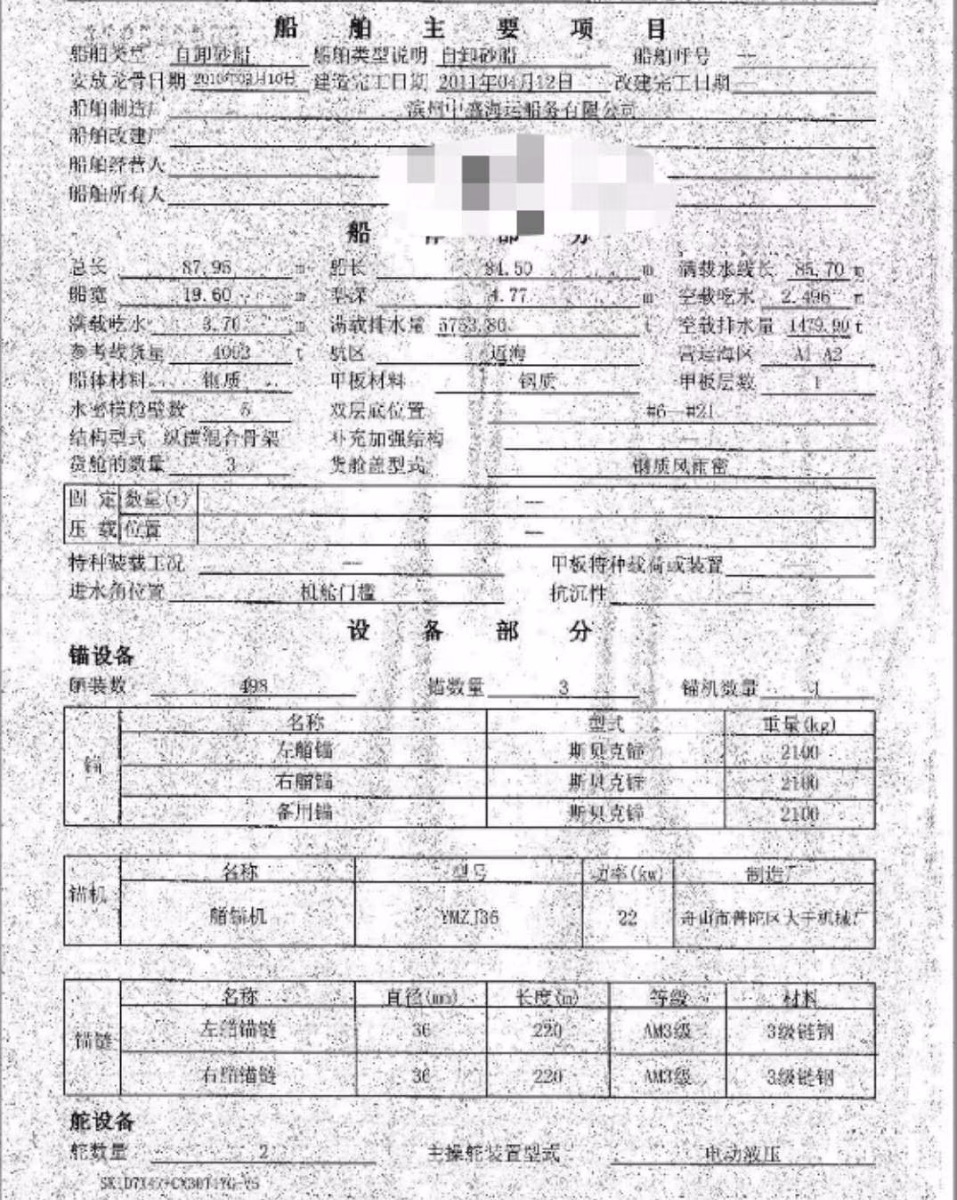 船舶主要项目
船舶类型 自卸砂船 船舶类型说明 自卸砂船 船舶呼号 —
安放龙骨日期 2010年02月10日 建造完工日期 2011年04月12日 改建完工日期 —
船舶制造厂 滨州中盛海运船务有限公司
船舶改建厂
船舶经营人
船舶所有人
船体部分
总长 87.95 m 船长 84.50 m 满载水线长 85.70 m
船宽 19.60 m 型深 4.77 m 空载吃水 2.496 m
满载吃水 3.70 m 满载排水量 5753.80 t 空载排水量 1479.90 t
参考载货量 t 航区 近海 营运海区 A1 A2
船体材料 钢质 甲板材料 钢质 甲板层数 1
水密横舱壁数 5 双层底位置 #6—#21
结构型式 纵横混合骨架 补充加强结构 —
货舱的数量 3 货舱盖型式 钢质风雨密
固定 数量(t) —
压载 位置 —
特种装载工况 — 甲板特种载荷或装置 —
进水角位置 机舱门槛 抗沉性 —
设备部分
锚设备
舾装数 498 锚数量 3 锚机数量 1
名称 型式 重量(kg)
左艏锚 斯贝克锚 2100
锚
右艏锚 斯贝克锚 2100
备用锚 斯贝克锚 2100
名称 型号 功率(kw) 制造厂
锚机
艏锚机 YMZJ36 22 舟山市普陀区大干机械厂
名称 直径(mm) 长度(m) 等级 材料
左艏锚链 36 220 AM3级 3级链钢
锚链
右艏锚链 36 220 AM3级 3级链钢
舵设备
舵数量 2 主操舵装置型式 电动液压